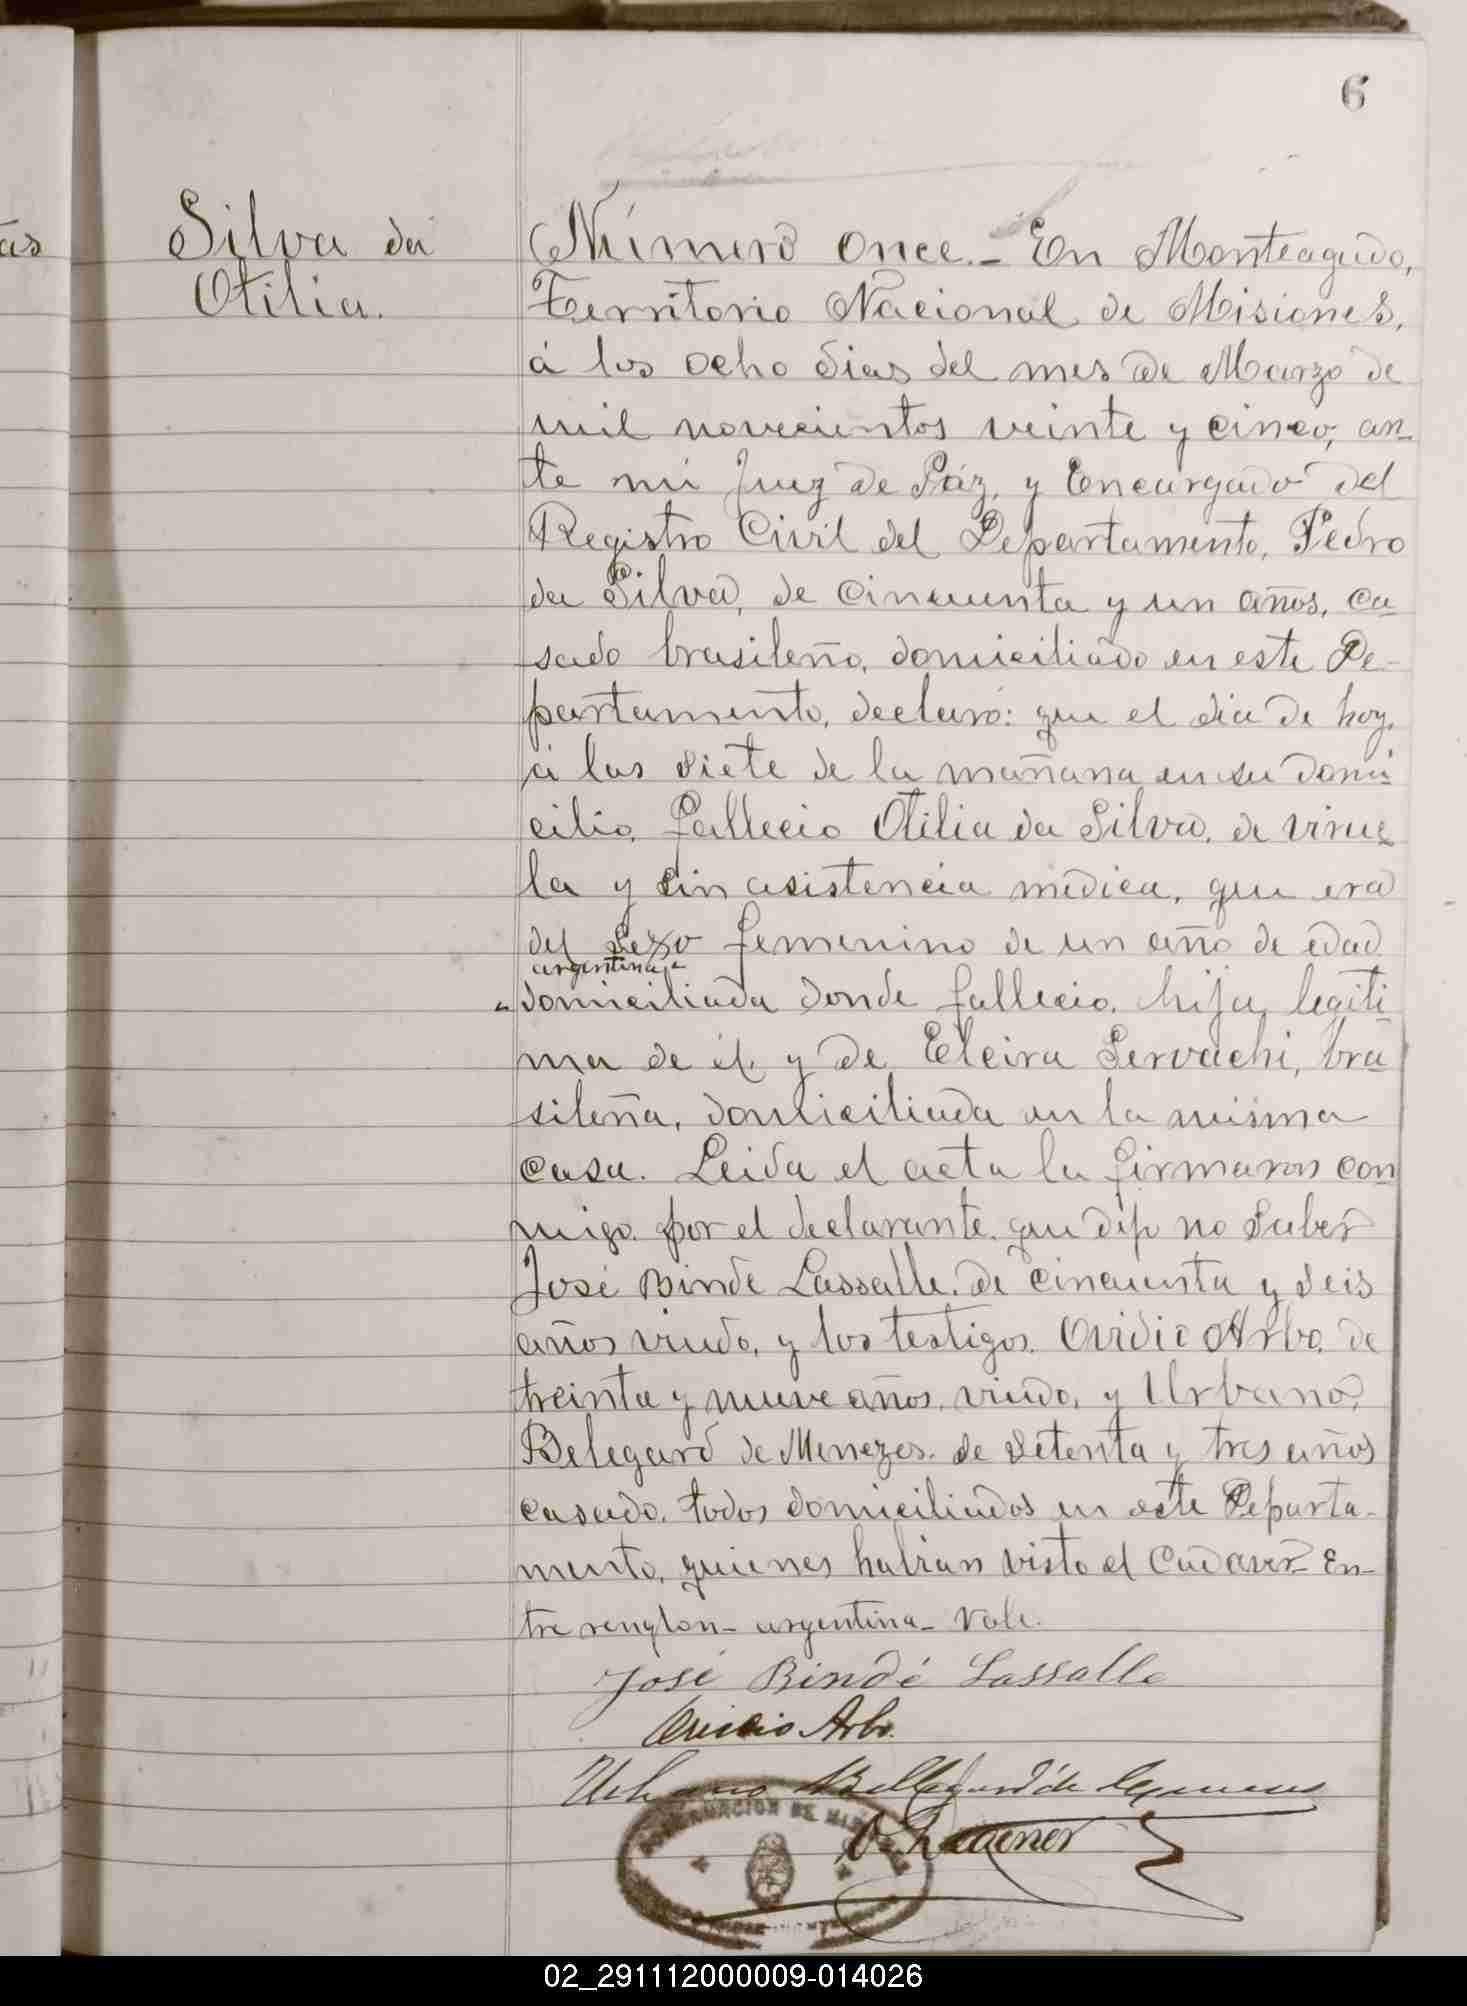 6
Silva da
Otilia.
Número once.- En Monteagudo,
Territorio Nacional de Misiones,
á los ocho dias del mes de Marzo de
mil novecientos veinte y cinco, an-
te mi Juez de Páz, y Encargado del
Registro Civil del Departamento, Pedro
da Silva, de cincuenta y un años, ca-
sado brasileño, domiciliado en este De-
partamento, declaró: que el dia de hoy,
á las siete de la mañana en su domi-
cilio, fallecio Otilia da Silva, de virue-
la y sin asistencia médica, que era
del sexo femenino de un año de edad
argentina-
-domiciliada donde fallecio, hija legiti-
ma de él, y de Elcira Servachi, bra-
sileña, domiciliada en la misma
casa. Leida el acta la firmaron con
migo, por el declarante, que dijo no saber
José Binde Lassalle, de cincuenta y seis
años viudo, y los testigos, Ovidio Arbo, de
treinta y nueve años, viudo, y Urbano
Belegard de Menezes, de setenta y tres años
casado, todos domiciliados en este Departa-
mento, quienes habian visto el cadaver- En-
tre renglon- argentina- Vale.
José Bindé Lassalle
Ovidio Arbo.
Urbano Bellegard de
GOBERNACION DE MISIONES
02_291112000009-014026